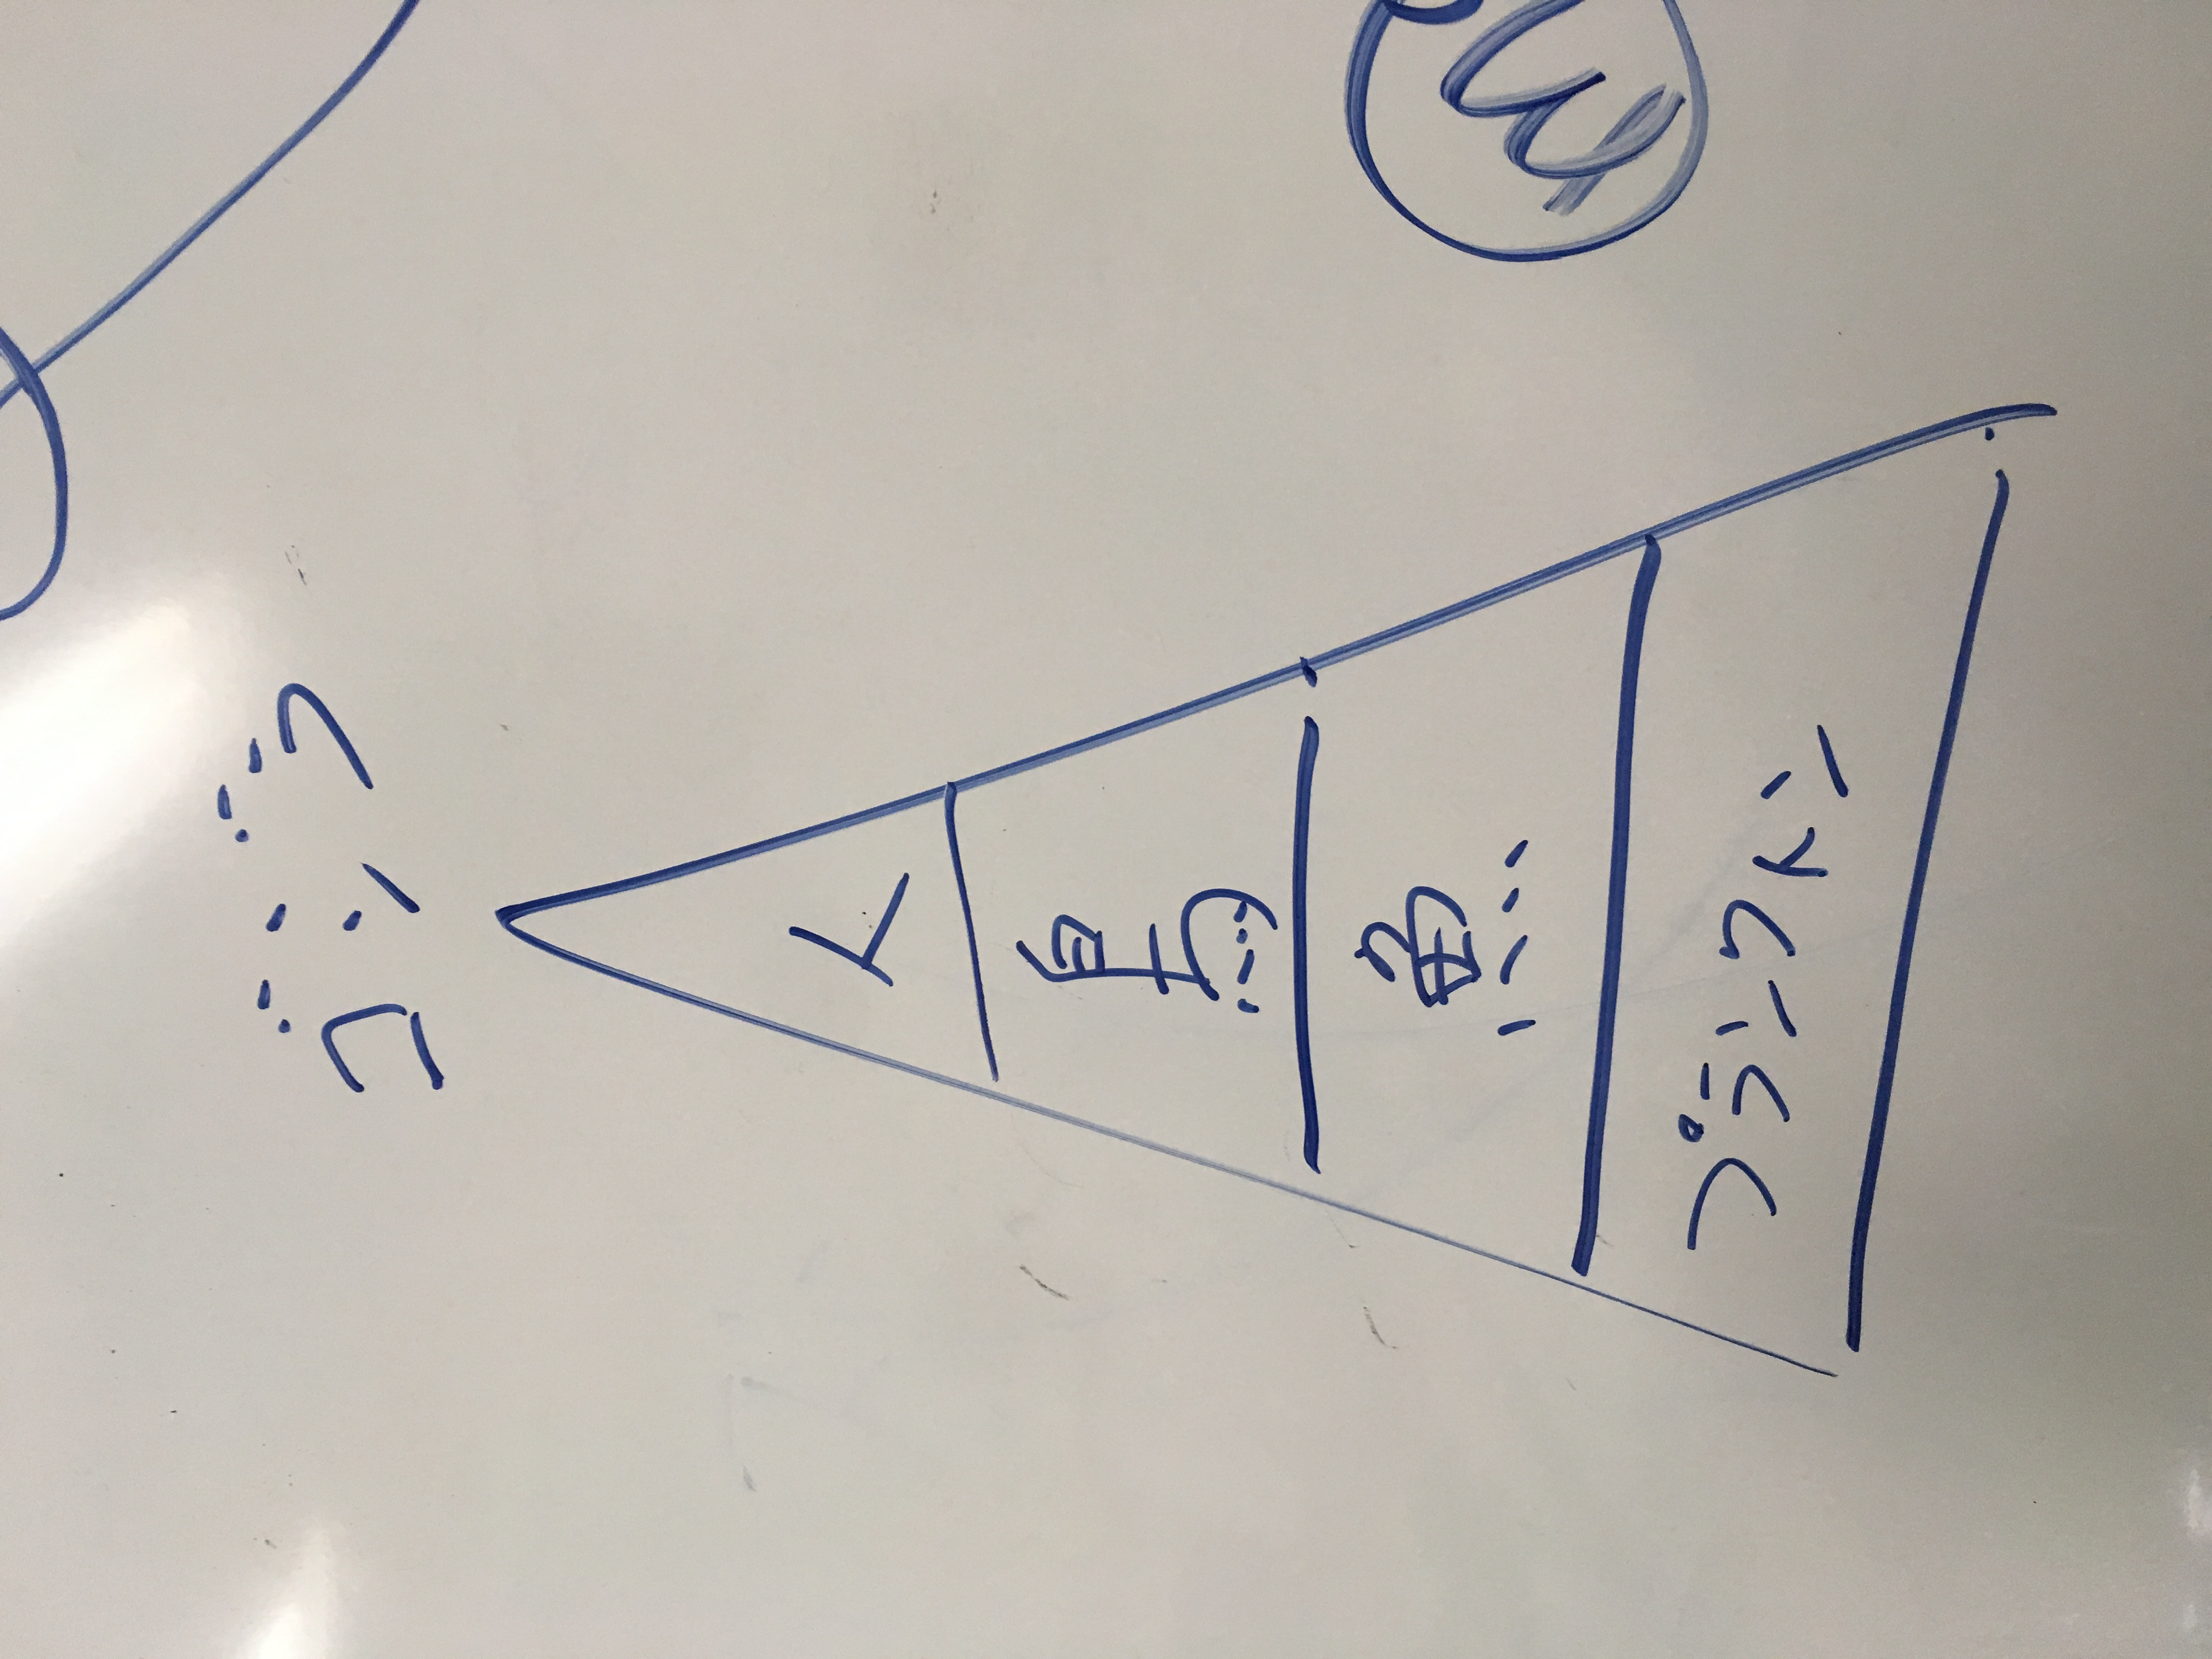 ゴジラ
人
鳥
魚
プランクトン